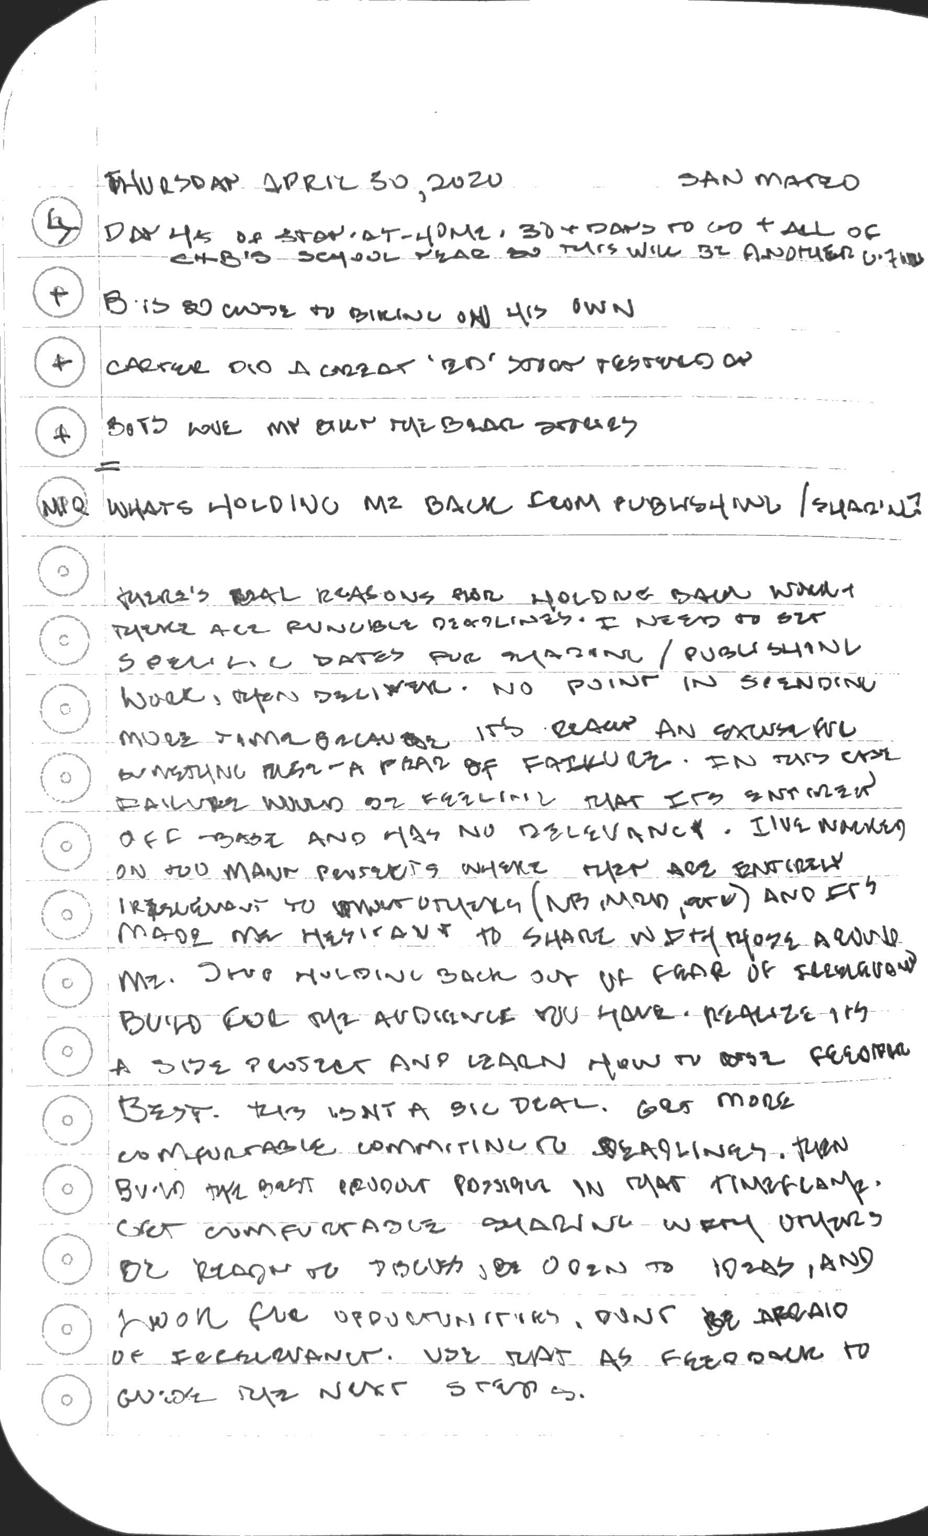 THURSDAY APRIL 30, 2020 SAN MATEO
DAY 45 OF STAY-AT-HOME. 30+ DAYS TO GO + ALL OF
C+B'S SCHOOL YEAR SO THIS WILL BE ANOTHER
+ B IS SO CLOSE TO BIKING ON HIS OWN
+ CARTER DID A GREAT STORY YESTERDAY
+ BOYS LOVE MY THE BEAR STORIES
=
MIQ WHATS HOLDING ME BACK FROM PUBLISHING / SHARING?
THERE'S REAL REASONS FOR HOLDING BACK WORK +
THERE ARE RUNCIBLE DEADLINES. I NEED TO SET
SPECIFIC DATES FOR SHARING / PUBLISHING
WORK, THEN DELIVER. NO POINT IN SPENDING
MORE TIME BECAUSE IT'S REALLY AN EXCUSE FOR
SOMETHING ELSE - A FEAR OF FAILURE. IN THIS CASE
FAILURE WOULD BE FEELING THAT ITS ENTIRELY
OFF-BASE AND HAS NO RELEVANCY. I'VE WORKED
ON TOO MANY PROJECTS WHERE THEY ARE ENTIRELY
IRRELEVANT TO OTHERS (NB, ETC) AND ITS
MADE ME HESITANT TO SHARE WITH THOSE AROUND
ME. STOP HOLDING BACK OUT OF FEAR OF IRRELEVANCY
BUILD FOR THE AUDIENCE YOU HAVE. REALIZE ITS
A SIDE PROJECT AND LEARN HOW TO USE FEEDBACK
BEST. THIS ISNT A BIG DEAL. GET MORE
COMFORTABLE COMMITING TO DEADLINES. THEN
BUILD THE BEST PRODUCT POSSIBLE IN THAT TIMEFRAME.
GET COMFORTABLE SHARING WITH OTHERS
BE READY TO DISCUSS, BE OPEN TO IDEAS, AND
LOOK FOR OPPORTUNITIES. DONT BE AFRAID
OF IRRELEVANCY. USE THAT AS FEEDBACK TO
GUIDE THE NEXT STEPS.